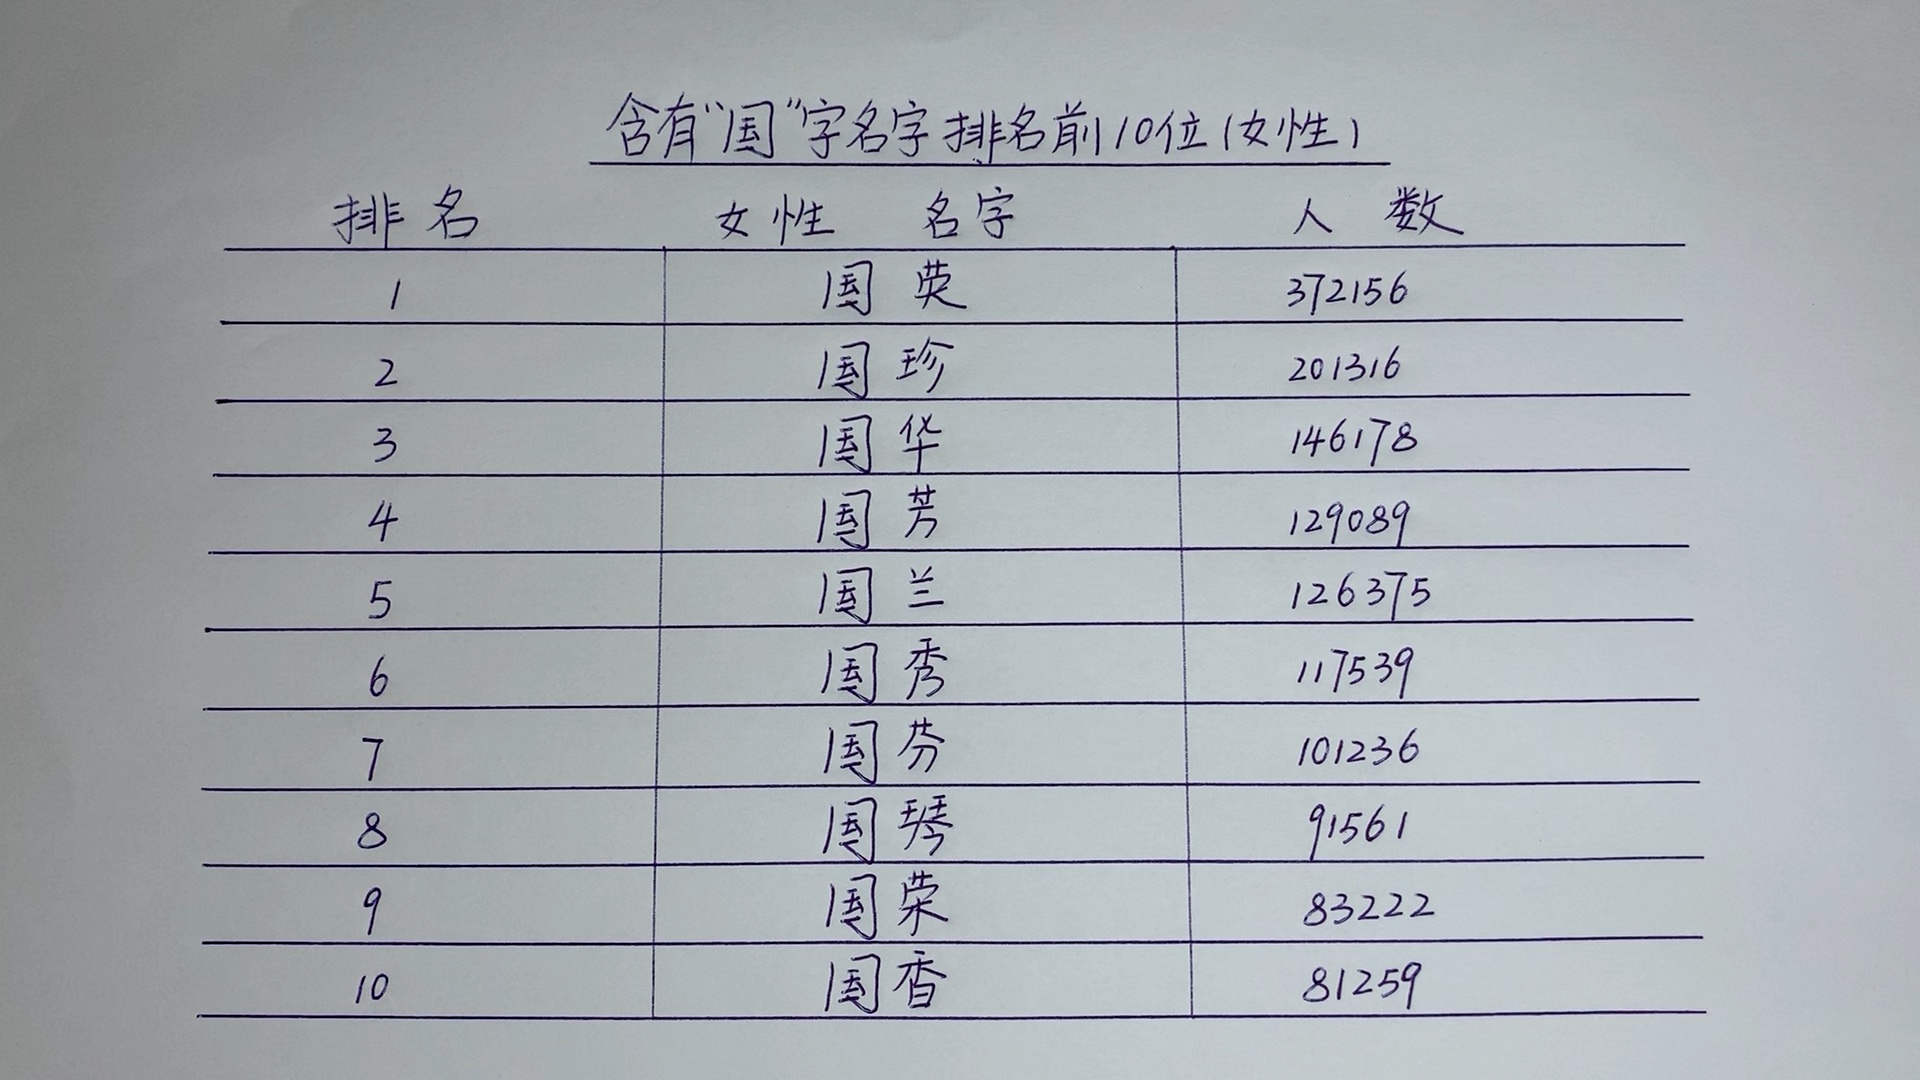 含有“国”字名字排名前10位(女性)
排名 女性 名字 人数
1 国英 372156
2 国珍 201316
3 国华 146178
4 国芳 129089
5 国兰 126375
6 国秀 117539
7 国芬 101236
8 国琴 91561
9 国荣 83222
10 国香 81259